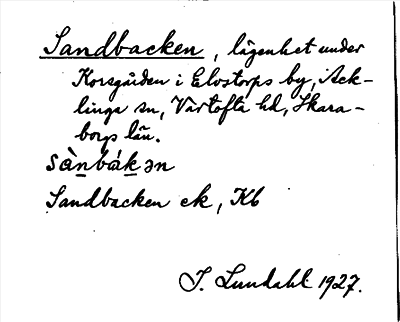 Sandbacken, lägenhet under
Korsgården i Elvstorps by, Ack-
linga sn, Vartofta hd, Skara-
borgs län.
sànbákən
Sandbacken ek, Kb
J. Lundahl 1927.